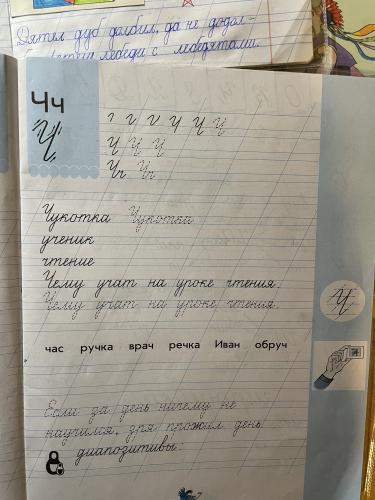 Дятел дуб долбил, да не додол-
лебеди с лебедятами.
Чч
Ч
Ч Ч Ч
Чч Чч
Чукотка Чукотка
ученик
чтение
Чему учат на уроке чтения.
Чему учат на уроке чтения.
Ч
час ручка врач речка Иван обруч
Если за день ничему не
научился, зря прожил день.
диапозитивы.
7